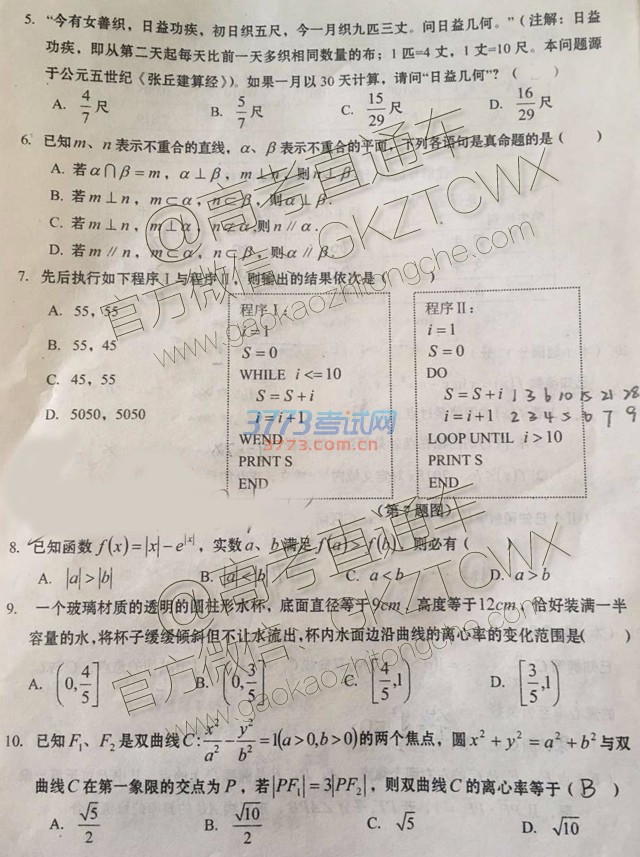 5. “今有女善织，日益功疾，初日织五尺，今一月织九匹三丈。问日益几何。”（注解：日益
功疾，即从第二天起每天比前一天多织相同数量的布；1匹=4丈，1丈=10尺。本问题源
于公元五世纪《张丘建算经》）。如果一月以30天计算，请问“日益几何”？（ ）
A. 4/7尺 B. 5/7尺 C. 15/29尺 D. 16/29尺
6. 已知m、n表示不重合的直线，α、β表示不重合的平面，下列各语句是真命题的是（ ）
A. 若α∩β=m，α⊥β，m⊥n，则n⊥β.
B. 若m⊥n，m⊂α，n⊂β，则α⊥β.
C. 若m⊥n，m⊥α，n⊄α，则n∥α.
D. 若m∥n，m⊂α，n⊂β，则α∥β.
7. 先后执行如下程序Ⅰ与程序Ⅱ，则输出的结果依次是（ ）
A. 55，55
B. 55，45
C. 45，55
D. 5050，5050
程序Ⅰ：
i=1
S=0
WHILE i<=10
S=S+i
i=i+1
WEND
PRINT S
END
程序Ⅱ：
i=1
S=0
DO
S=S+i 1 3 6 10 15 21 28
i=i+1 2 3 4 5 6 7 9
LOOP UNTIL i>10
PRINT S
END
（第7题图）
8. 已知函数f(x)=|x|-e^|x|，实数a、b满足f(a)>f(b)，则必有（ ）
A. |a|>|b| B. |a|<|b| C. a<b D. a>b
9. 一个玻璃材质的透明的圆柱形水杯，底面直径等于9cm，高度等于12cm，恰好装满一半
容量的水,将杯子缓缓倾斜但不让水流出,杯内水面边沿曲线的离心率的变化范围是( )
A. (0,4/5] B. (0,3/5] C. [4/5,1) D. [3/5,1)
10. 已知F₁、F₂是双曲线C:x²/a²-y²/b²=1(a>0,b>0)的两个焦点，圆x²+y²=a²+b²与双
曲线C在第一象限的交点为P，若|PF₁|=3|PF₂|，则双曲线C的离心率等于（ B ）
A. √5/2 B. √10/2 C. √5 D. √10
@高考直通车
官方微信：GKZTCWX
www.gaokaozhitongche.com
3773考试网
3773.com.cn
@高考直通车
官方微信：GKZTCWX
www.gaokaozhitongche.com